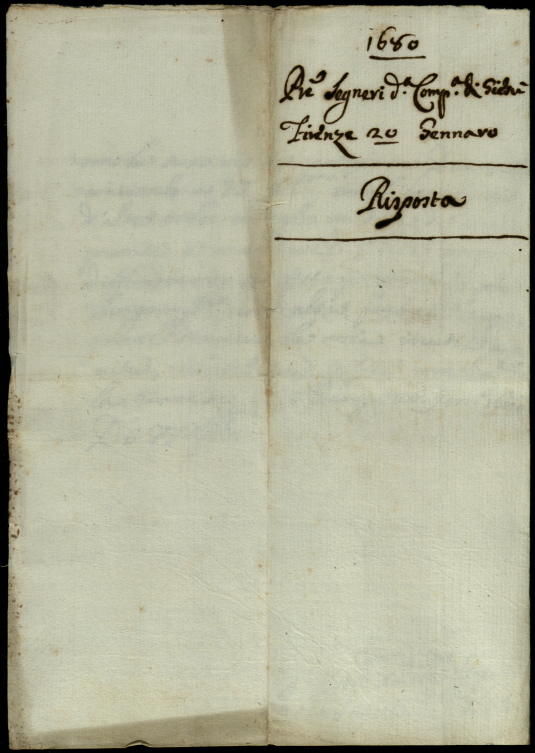 1680
Pre Segneri d.a Comp.a di Giesù
Firenze 20 Gennaro
Risposta